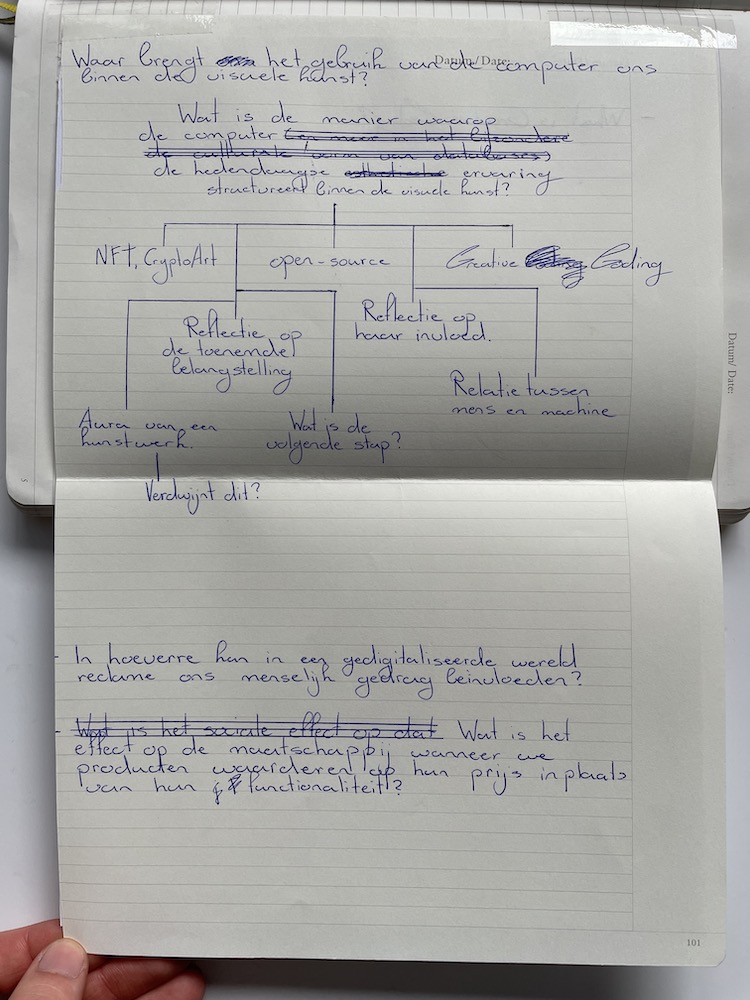 Datum/ Date:
Waar brengt het gebruik van de computer ons
binnen de visuele kunst?
Wat is de manier waarop
de computer (en meer in het bijzondere
de culturele vorm van databases)
de hedendaagse esthetische ervaring
structureert binnen de visuele kunst?
NFT, CryptoArt
open-source
Creative Coding
Reflectie op
de toenemdel
belangstelling
Reflectie op
haar invloed.
Relatie tussen
mens en machine
Aura van een
kunstwerk.
Wat is de
volgende stap?
Verdwijnt dit?
Datum/ Date:
- In hoeverre kan in een gedigitaliseerde wereld
reclame ons menselijk gedrag beïnvloeden?
- Wat is het sociale effect op dat Wat is het
effect op de maatschappij wanneer we
producten waarderen op hun prijs in plaats
van hun functionaliteit?
101